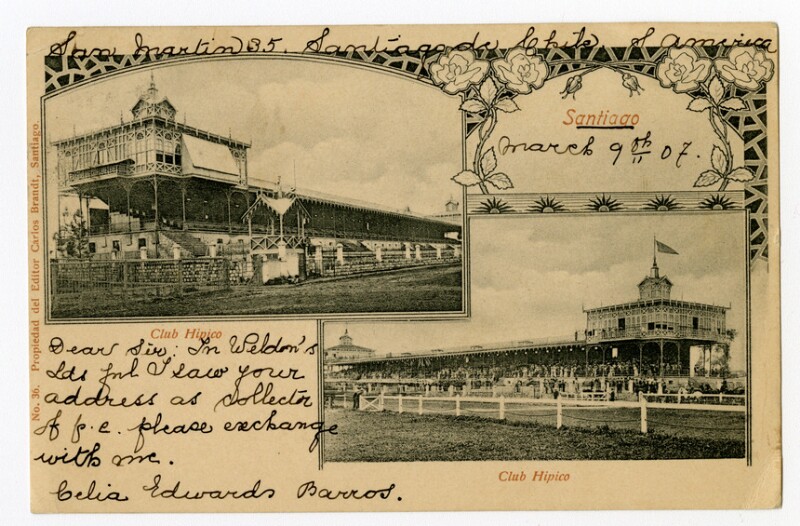 San Martin 35. Santiago de Chile of America
Santiago
March 9th 07.
No. 36. Propiedad del Editor Carlos Brandt, Santiago.
Club Hípico
Dear Sir: In Weldon's
Lds jnl I saw your
address as collector
of p.c. please exchange
with me.
Celia Edwards Barros.
Club Hípico